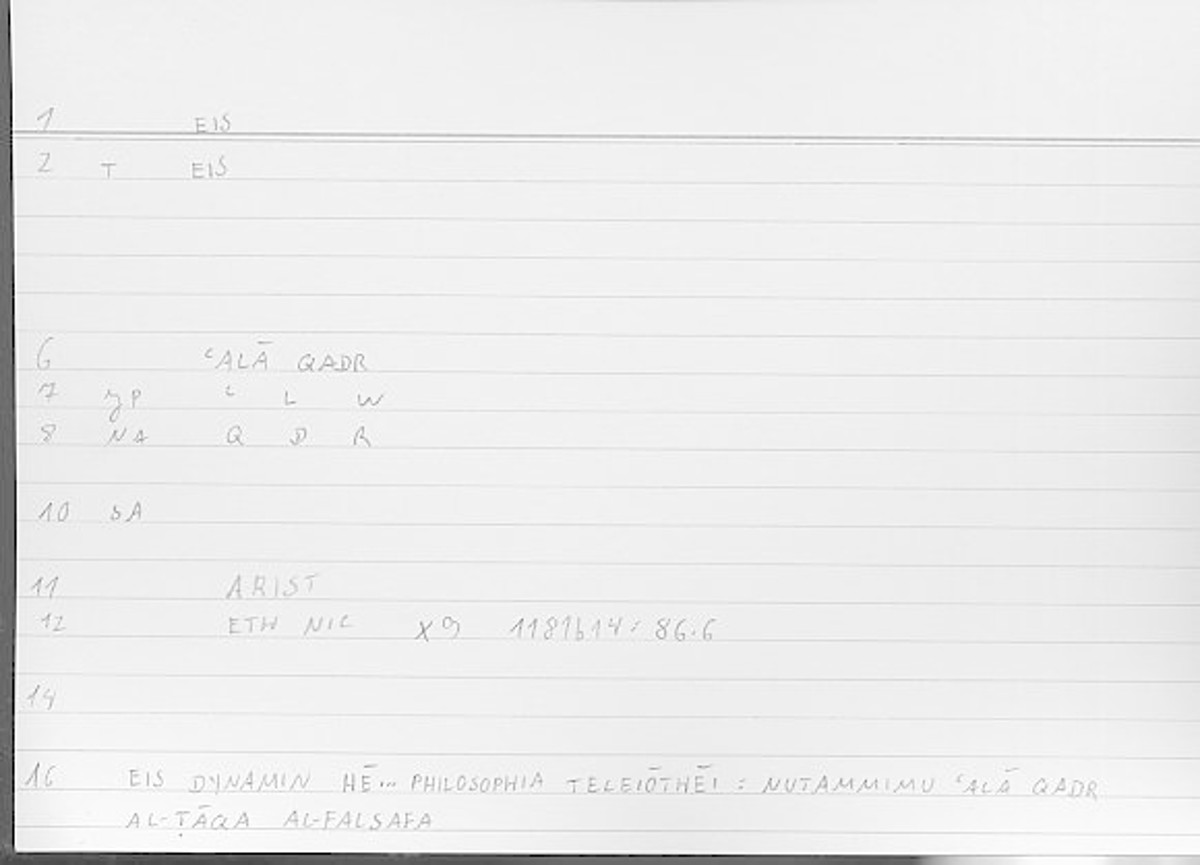 1 EIS
2 T EIS
6 ʿALĀ QADR
7 yP ʿ L W
8 NA Q D R
10 SA
11 ARIST
12 ETH NIC X9 1181b14 : 86.6
14
16 EIS DYNAMIN HĒ... PHILOSOPHIA TELEIŌTHĒI : NUTAMMIMU ʿALĀ QADR
AL-ṬĀQA AL-FALSAFA